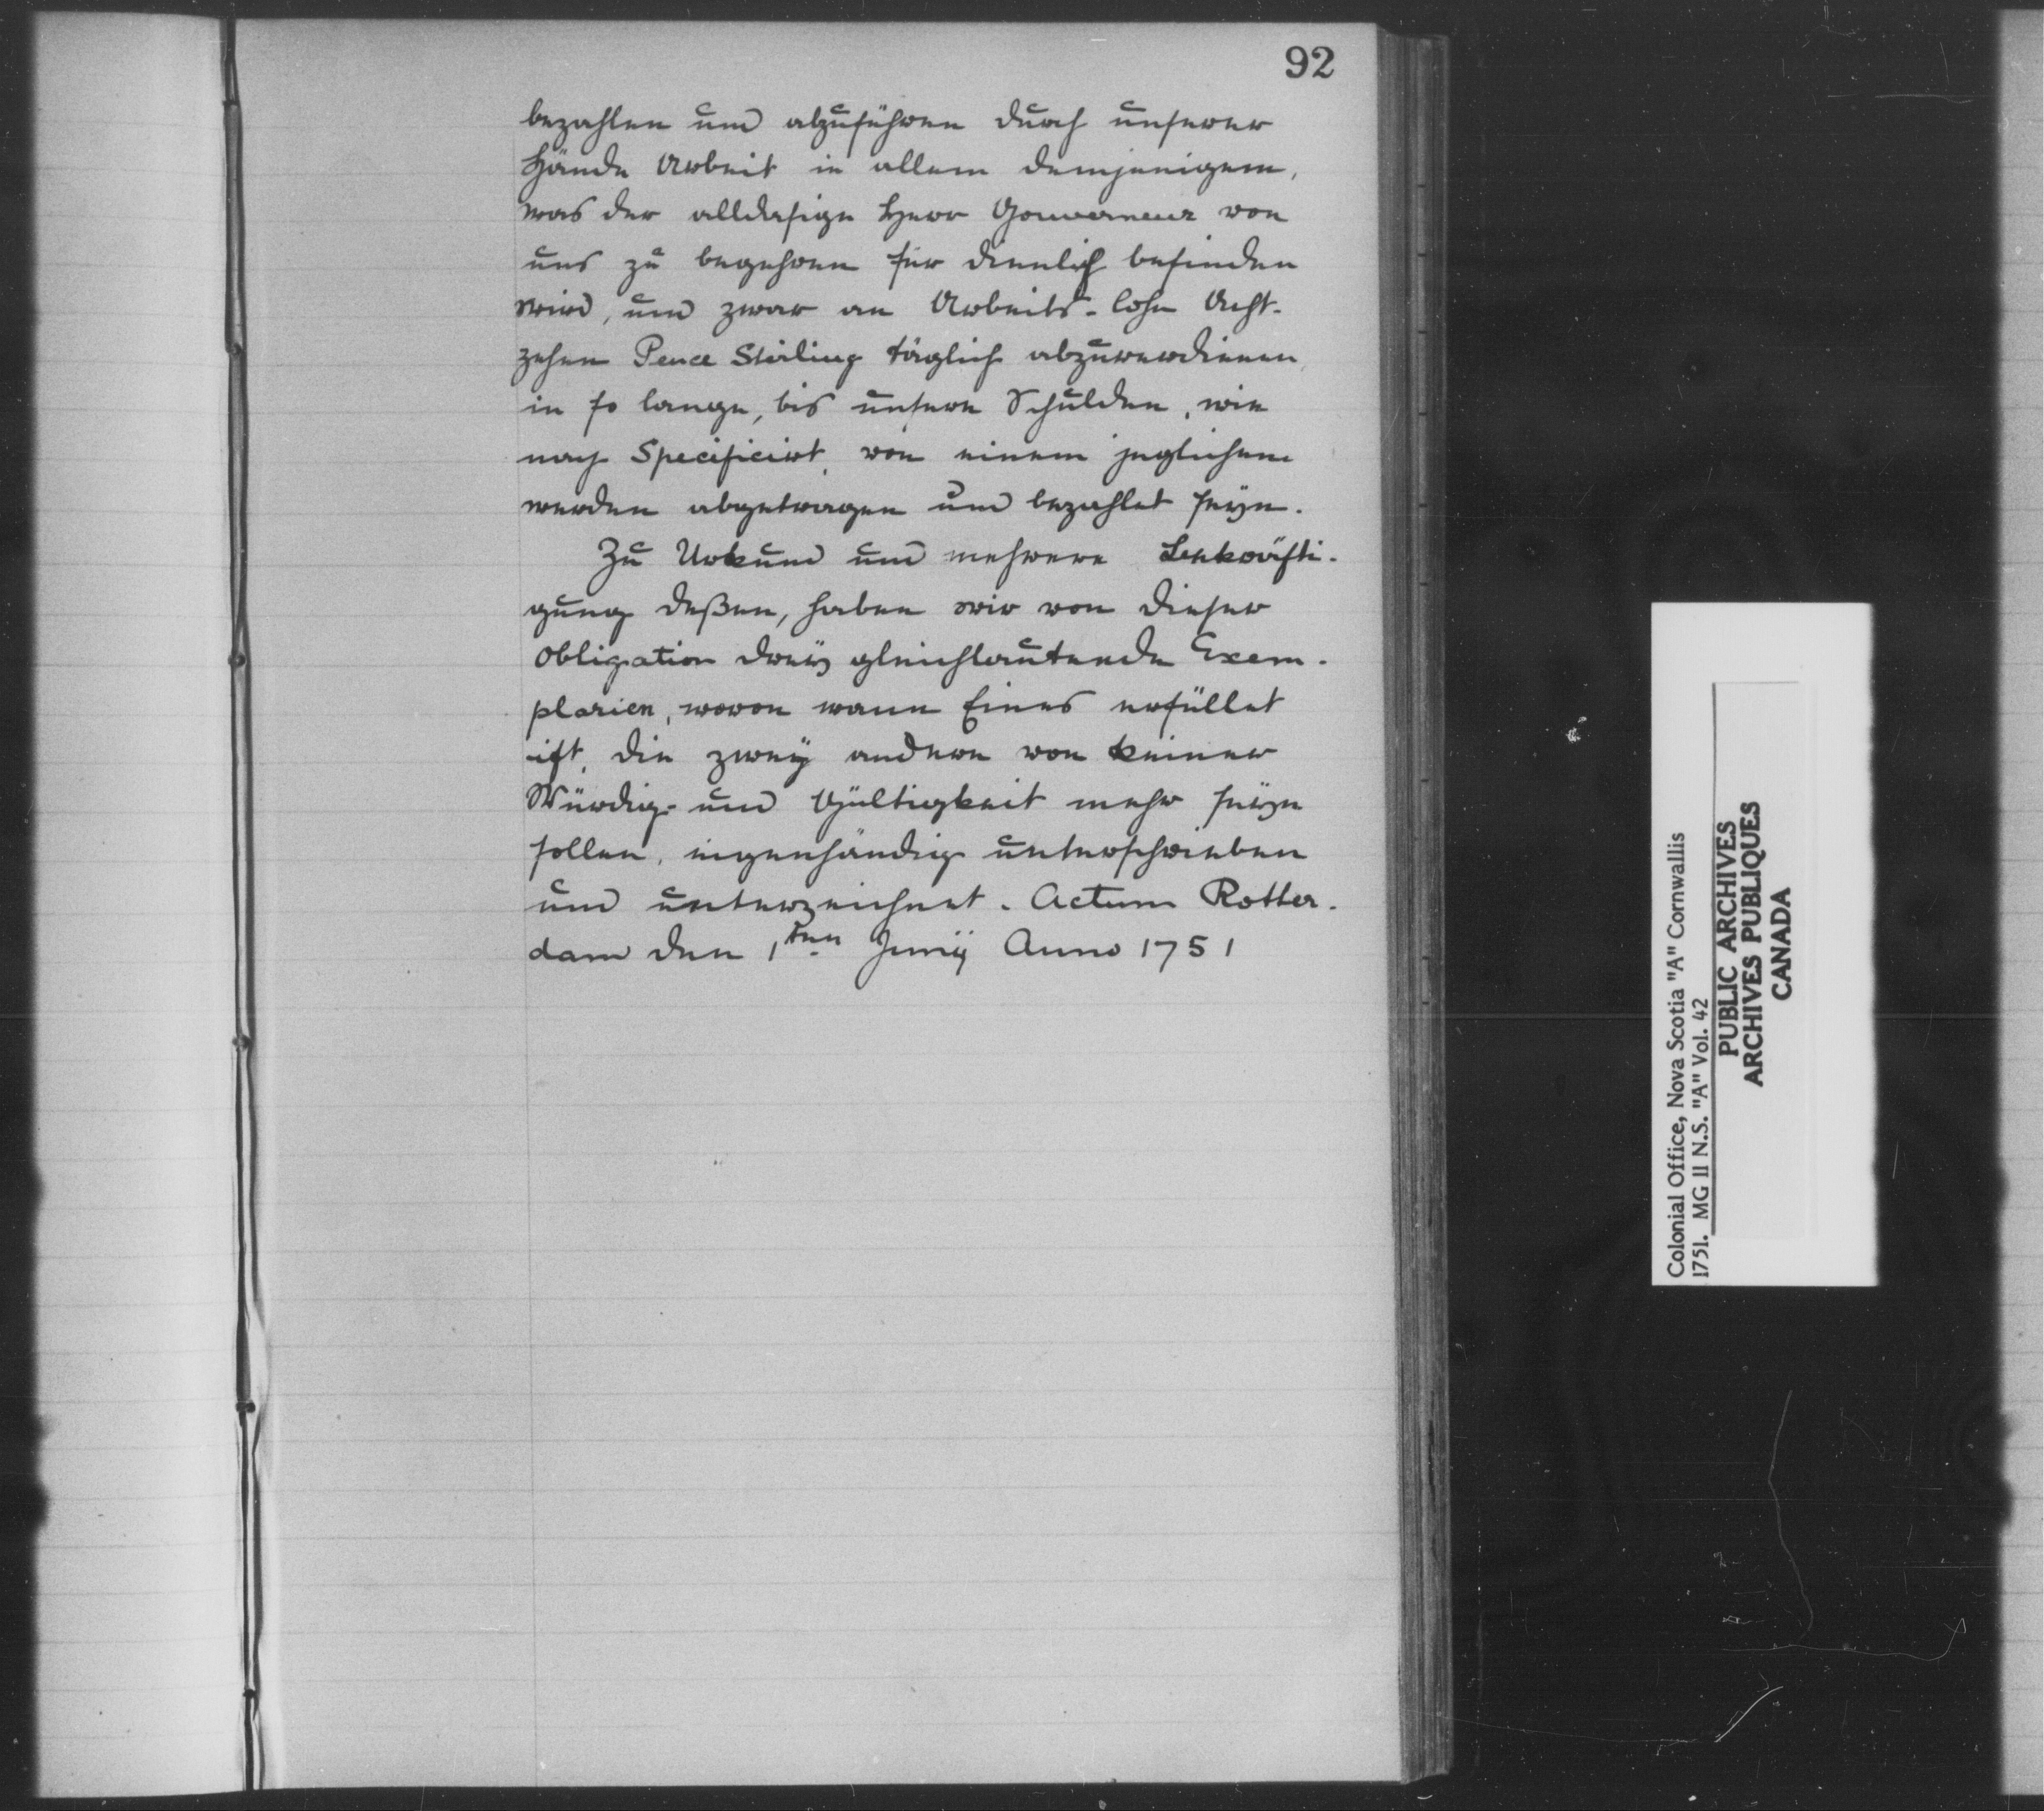 92
bezahlen und abzuführen durch unserer
Hände Arbeit in allem demjenigem,
was der alldasige Herr Gouverneur von
uns zu begehren für dienlich befinden
wird, und zwar an Arbeits-lohn Acht-
zehen Pence Sterling täglich abzuverdienen,
in so lange, bis unsere Schulden, wie
nach Specificirt, von einem jeglichem
werden abgetragen und bezahlet seÿn.
Zu Urkund und mehrere Bekräfti-
gung deßen, haben wir von dieser
Obligation dreÿ gleichlautende Exem-
plarien, wovon wann Eines erfüllet
ist, die zweÿ andere von keiner
Würdig- und Gültigkeit mehr seÿn
sollen, eigenhändig unterschrieben
und unterzeichnet. Actum Rotter-
dam den 1ten Junÿ Anno 1751
Colonial Office, Nova Scotia "A" Cornwallis
1751. MG 11 N.S. "A" Vol. 42
PUBLIC ARCHIVES
ARCHIVES PUBLIQUES
CANADA